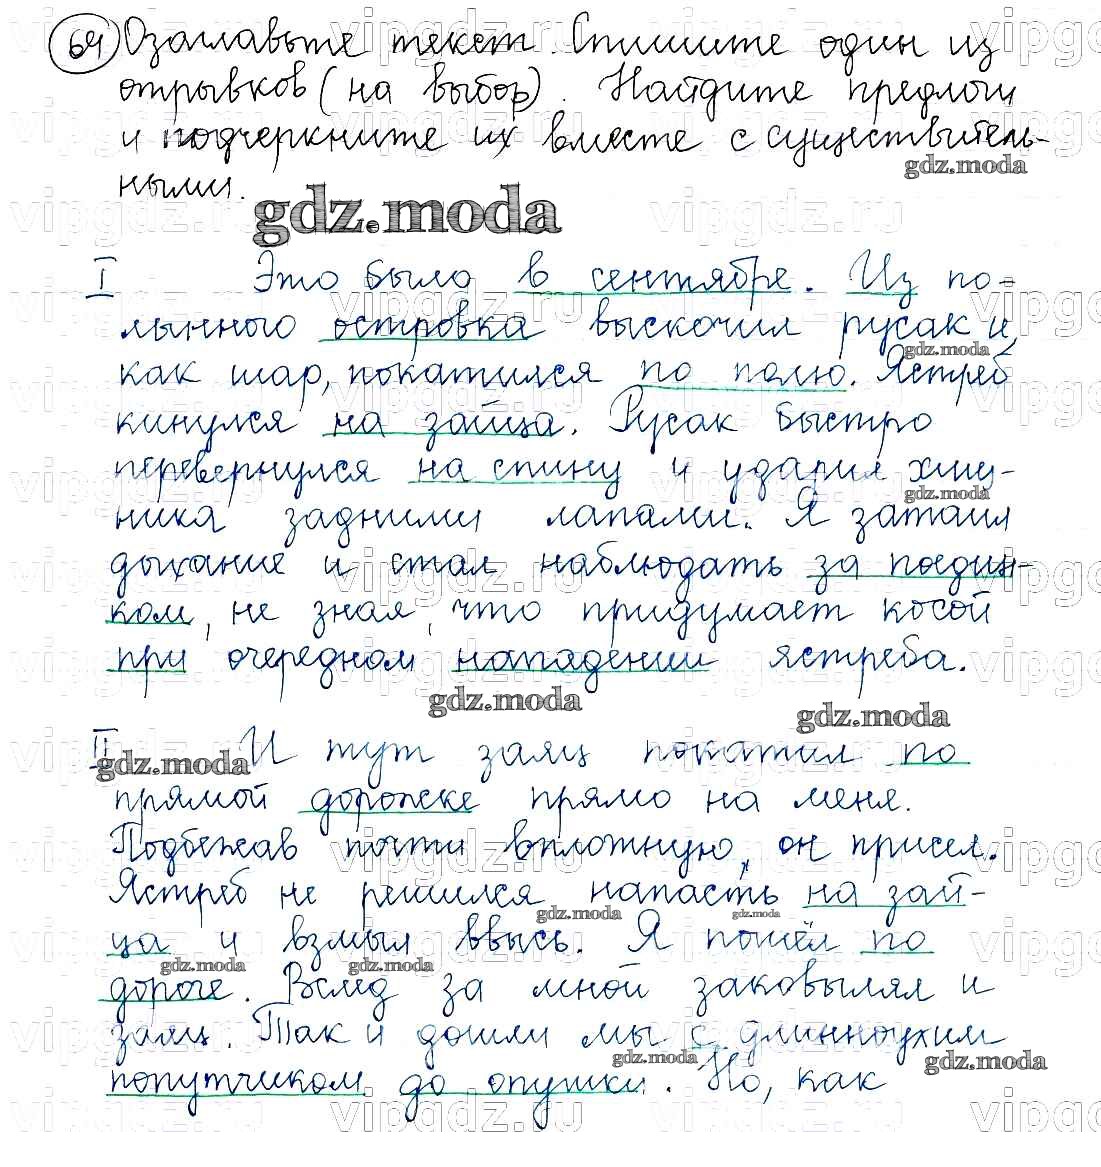 64 Озаглавьте текст. Спишите один из
отрывков (на выбор). Найдите предлоги
и подчеркните их вместе с существитель-
ными.
gdz.moda
gdz.moda
I Это было в сентябре. Из по-
лынного островка выскочил русак и,
gdz.moda
как шар, покатился по полю. Ястреб
кинулся на зайца. Русак быстро
перевернулся на спину и ударил хищ-
gdz.moda
ника задними лапами. Я затаил
дыхание и стал наблюдать за поедин-
ком, не зная, что придумает косой
при очередном нападении ястреба.
gdz.moda
gdz.moda
II И тут заяц покатил по
gdz.moda
прямой дорожке прямо на меня.
Подбежав почти вплотную, он присел.
Ястреб не решился напасть на зай-
gdz.moda gdz.moda
ца и взмыл ввысь. Я пошёл по
gdz.moda gdz.moda
дороге. Вслед за мной заковылял и
заяц. Так и дошли мы с длинноухим
gdz.moda gdz.moda
попутчиком до опушки. Но, как
vipgdz.ru